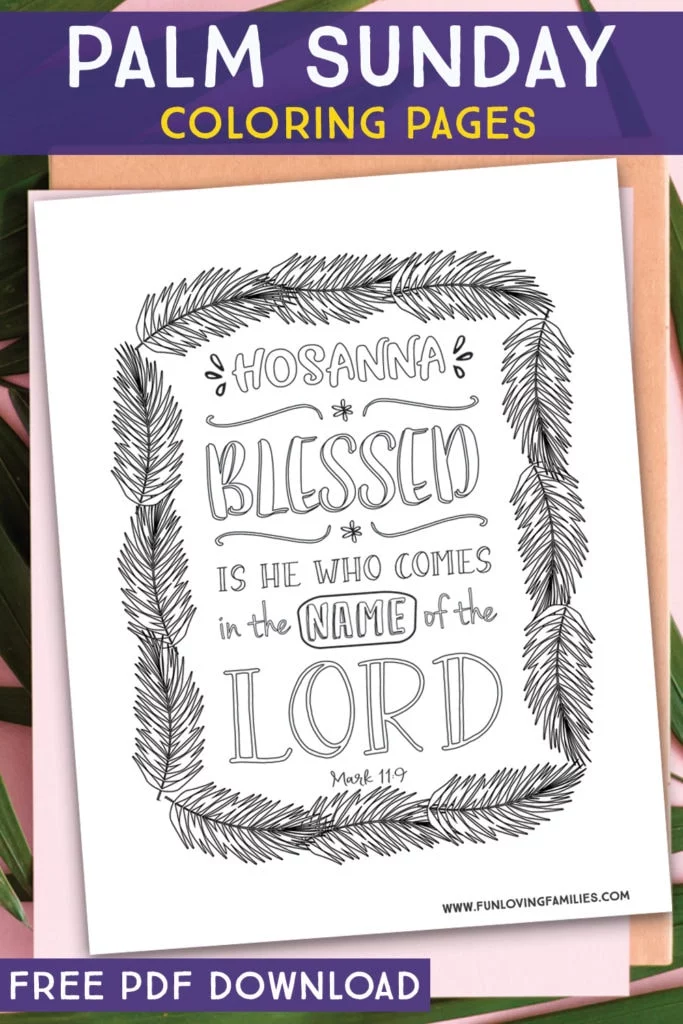 PALM SUNDAY
COLORING PAGES
HOSANNA
BLESSED
IS HE WHO COMES
in the NAME of the
LORD
Mark 11:9
WWW.FUNLOVINGFAMILIES.COM
FREE PDF DOWNLOAD